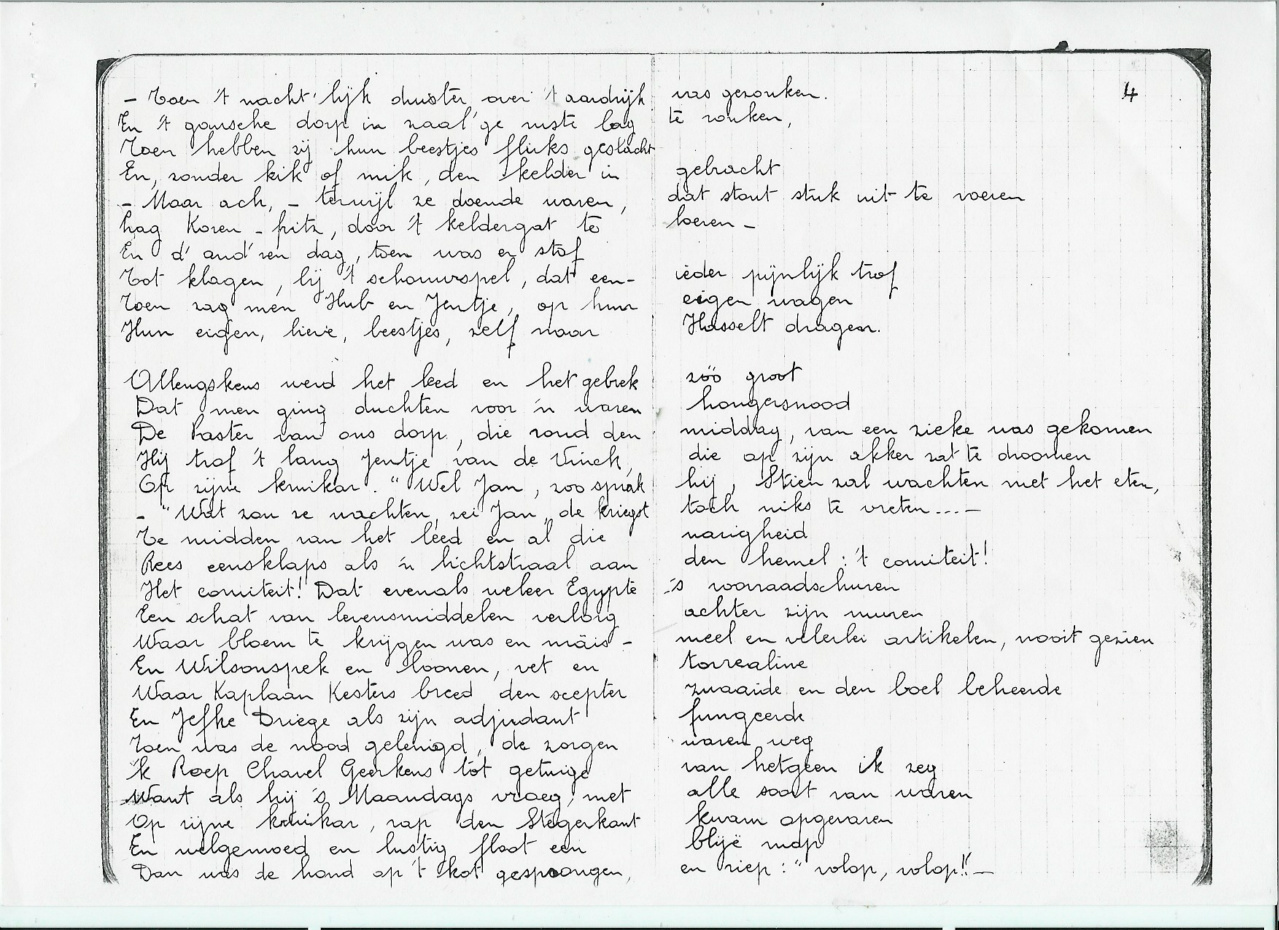 4
- Toen 't nacht'lijk duister over 't aardrijk was gezonken.
En 't gansche dorp in zaal'ge ruste lag te ronken,
Toen hebben zij hun beestjes fluks geslacht
En, zonder kik of mik, den kelder in gebracht
- Maar ach, - terwijl ze doende waren, dat stout stuk uit te voeren
Lag Koren-fritz, door 't keldergat te loeren -
En d'and'ren dag, toen was er stof
Tot klagen, bij 't schouwspel, dat een- ieder pijnlijk trof
Toen zag men Hub en Jentje, op hun eigen wagen
Hun eigen, lieve, beestjes, zelf naar Hasselt dragen.
Allengskens werd het leed en het gebrek zóó groot
Dat men ging duchten voor 'n waren hongersnood
De Paster van ons dorp, die rond den middag, van een zieke was gekomen
Hij trof 't lang Jentje van de Vinck, die op zijn akker zat te droomen
Op zijne kruikar. "Wel Jan, zoo sprak hij, Stien zal wachten met het eten,
- "Wat zou ze wachten, zei Jan, de kriegst toch niks te vreten...-
Te midden van het leed en al die narigheid
Rees eensklaps als 'n lichtstraal aan den hemel: 't comiteit!
Het comiteit! Dat evenals weleer Egypte 's voorraadschuren
Een schat van levensmiddelen verborg achter zijn muren
Waar bloem te krijgen was en maïs- meel en velerlei artikelen, nooit gezien
En Wilsonsprek en boonen, vet en torrealine
Waar Kaplaan Kesters breed den scepter zwaaide en den boel beheerde
En Jefke Driege als zijn adjudant fungeerde
Toen was de nood gelenigd, de zorgen waren weg
'k Roep Charel Geerkens tot getuige van hetgeen ik zeg
Want als hij 's Maandags vroeg, met alle soort van waren
Op zijne kruikar, rap den Stegerkant kwam opgevaren
En welgemoed en lustig floot een blije mop
Dan was de hond op 't kot gesprongen, en riep: "volop, volop!!-